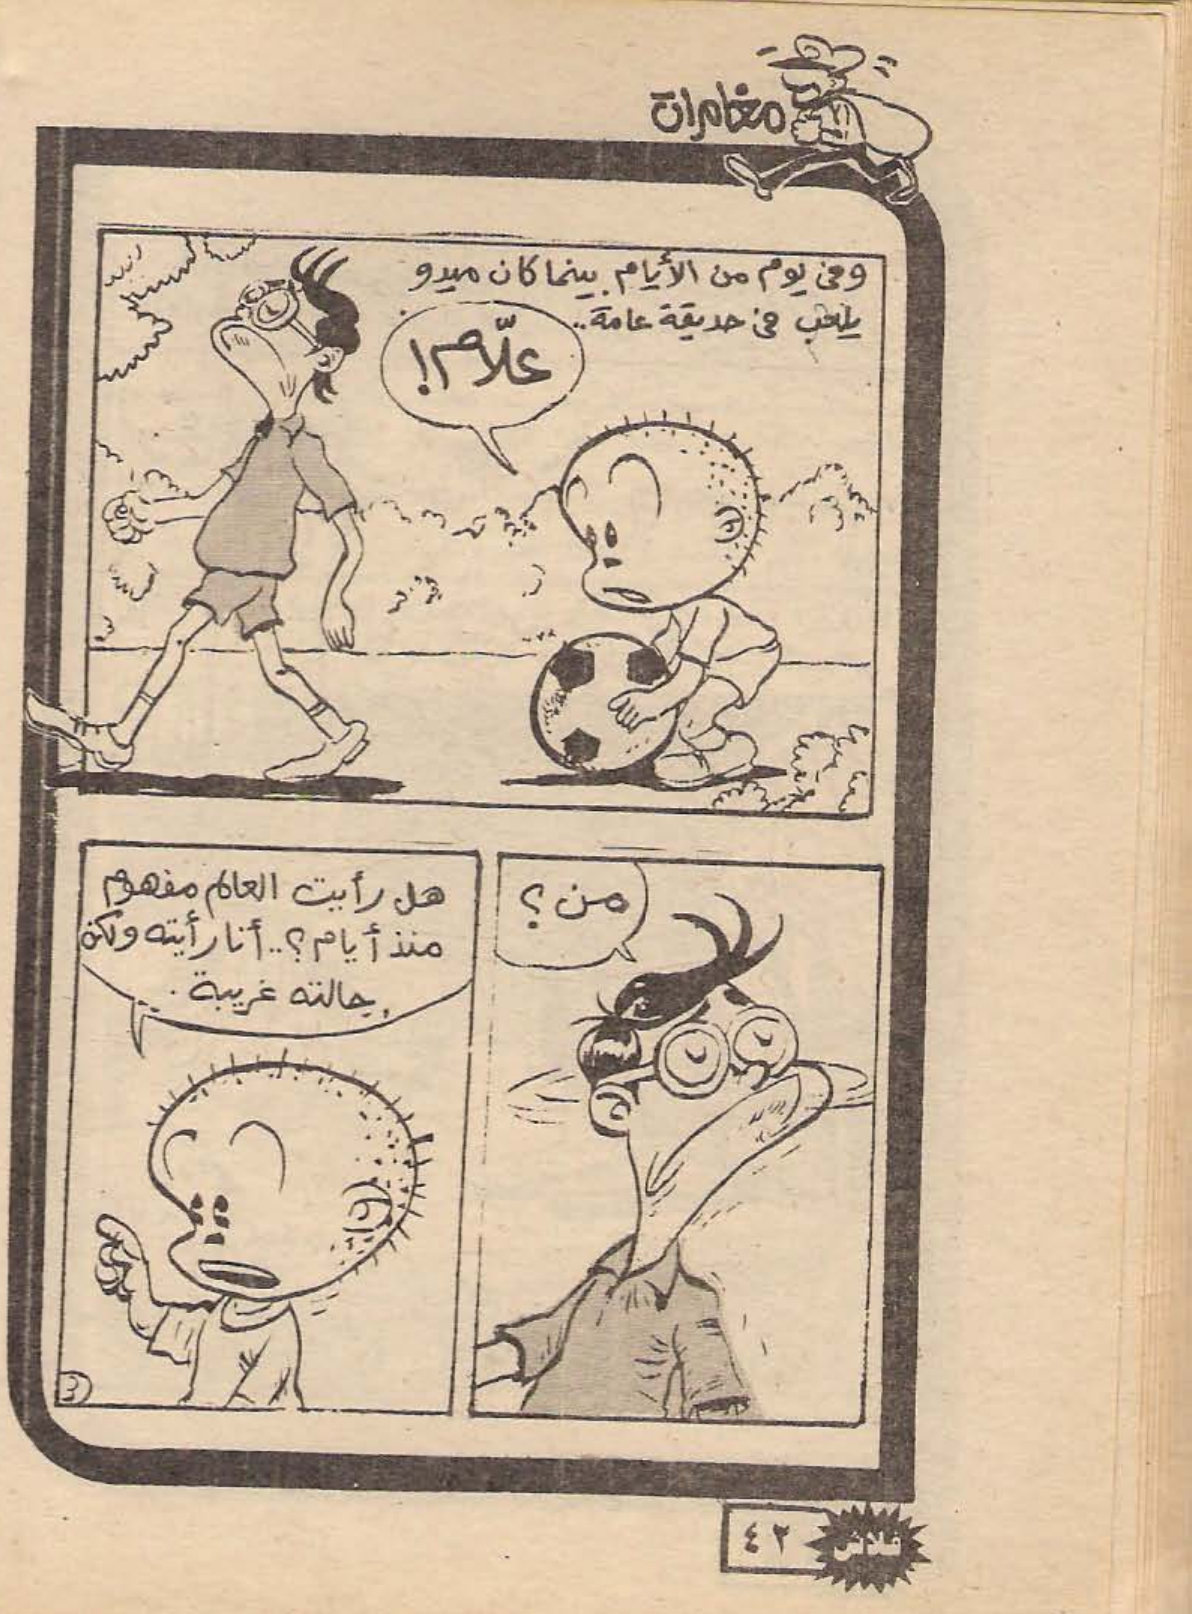 مغامرات
وفى يوم من الأيام بينما كان ميدو
يلعب فى حديقة عامة..
علّام!
من؟
هل رأيت العالم مفهوم
منذ أيام؟.. أنا رأيته ولكن
حالته غريبة.
3
فلاش ٤٢